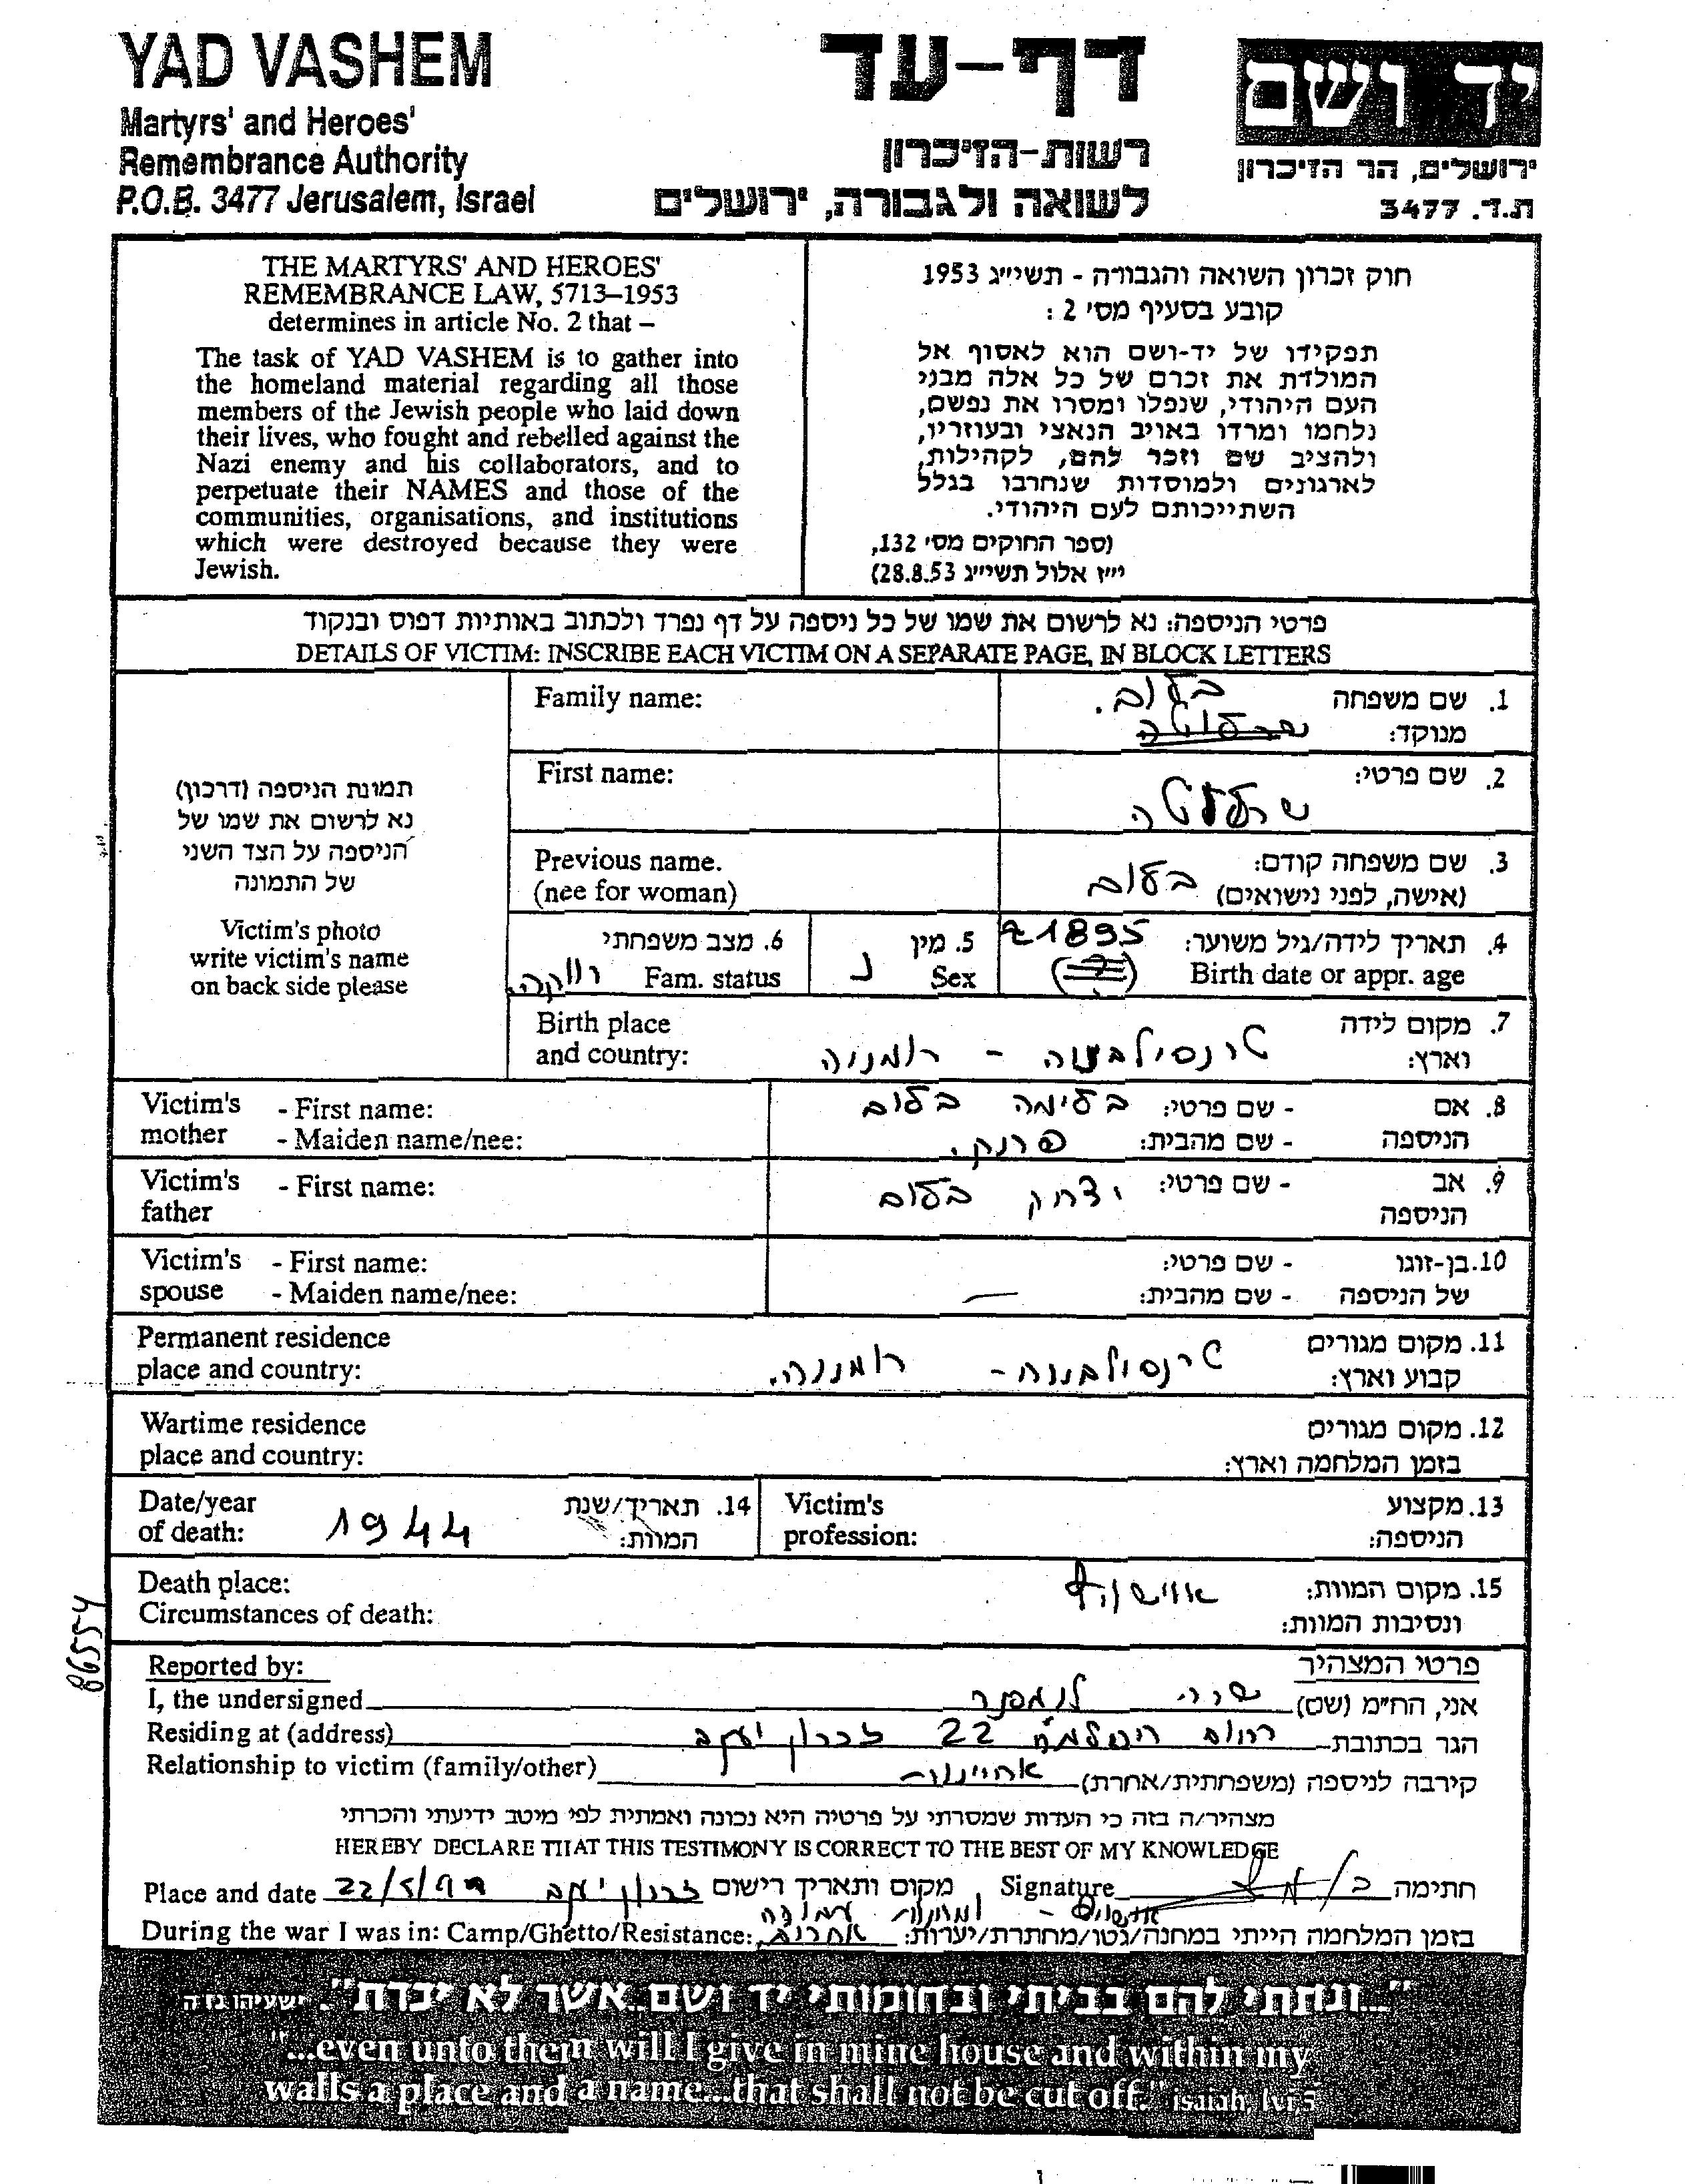 YAD VASHEM
Martyrs' and Heroes'
Remembrance Authority
P.O.B. 3477 Jerusalem, Israel
דף-עד
רשות-הזיכרון
לשואה ולגבורה, ירושלים
יד ושם
ירושלים, הר הזיכרון
ת.ד. 3477
THE MARTYRS' AND HEROES'
REMEMBRANCE LAW, 5713–1953
determines in article No. 2 that –
The task of YAD VASHEM is to gather into
the homeland material regarding all those
members of the Jewish people who laid down
their lives, who fought and rebelled against the
Nazi enemy and his collaborators, and to
perpetuate their NAMES and those of the
communities, organisations, and institutions
which were destroyed because they were
Jewish.
חוק זכרון השואה והגבורה - תשי״ג 1953
קובע בסעיף מס׳ 2 :
תפקידו של יד-ושם הוא לאסוף אל
המולדת את זכרם של כל אלה מבני
העם היהודי, שנפלו ומסרו את נפשם,
נלחמו ומרדו באויב הנאצי ובעוזריו,
ולהציב שם וזכר להם, לקהילות,
לארגונים ולמוסדות שנחרבו בגלל
השתייכותם לעם היהודי.
(ספר החוקים מס׳ 132,
י״ז אלול תשי״ג 28.8.53)
פרטי הניספה: נא לרשום את שמו של כל ניספה על דף נפרד ולכתוב באותיות דפוס ובנקוד
DETAILS OF VICTIM: INSCRIBE EACH VICTIM ON A SEPARATE PAGE, IN BLOCK LETTERS
תמונת הניספה (דרכון)
נא לרשום את שמו של
הניספה על הצד השני
של התמונה
Victim's photo
write victim's name
on back side please
Family name: 1. שם משפחה
מנוקד:
First name: 2. שם פרטי:
Previous name. 3. שם משפחה קודם:
(nee for woman) (אישה, לפני נישואים)
4. תאריך לידה/גיל משוער: 1895
Birth date or appr. age
5. מין נ
Sex
6. מצב משפחתי
Fam. status רווקה.
Birth place 7. מקום לידה
and country: וארץ: טרנסילבניה - רומניה
Victim's - First name: 8. אם - שם פרטי:
mother - Maiden name/nee: הניספה - שם מהבית: פרנק.
Victim's - First name: 9. אב - שם פרטי: יצחק
father הניספה
Victim's - First name: 10. בן-זוגו - שם פרטי:
spouse - Maiden name/nee: של הניספה - שם מהבית: —
Permanent residence 11. מקום מגורים
place and country: קבוע וארץ: טרנסילבניה - רומניה.
Wartime residence 12. מקום מגורים
place and country: בזמן המלחמה וארץ:
Date/year 14. תאריך/שנת
of death: 1944 המוות:
Victim's 13. מקצוע
profession: הניספה:
Death place: 15. מקום המוות: אוישוויץ
Circumstances of death: ונסיבות המוות:
86554
Reported by: פרטי המצהיר
I, the undersigned אני, הח״מ (שם) שרה
Residing at (address) הגר בכתובת רחוב 22 זכרון יעקב
Relationship to victim (family/other) קירבה לניספה (משפחתית/אחרת) אחיינית
מצהיר/ה בזה כי העדות שמסרתי על פרטיה היא נכונה ואמתית לפי מיטב ידיעתי והכרתי
HEREBY DECLARE THAT THIS TESTIMONY IS CORRECT TO THE BEST OF MY KNOWLEDGE
Place and date 22/5/99 זכרון יעקב מקום ותאריך רישום Signature חתימה
During the war I was in: Camp/Ghetto/Resistance: בזמן המלחמה הייתי במחנה/גטו/מחתרת/יערות:
אושוויץ - ומחנות עבודה
אחרים.
"...ונתתי להם בביתי ובחומותי יד ושם..אשר לא יכרת". ישעיהו נו ה
"...even unto them will I give in mine house and within my
walls a place and a name...that shall not be cut off." isaiah, lvi 5